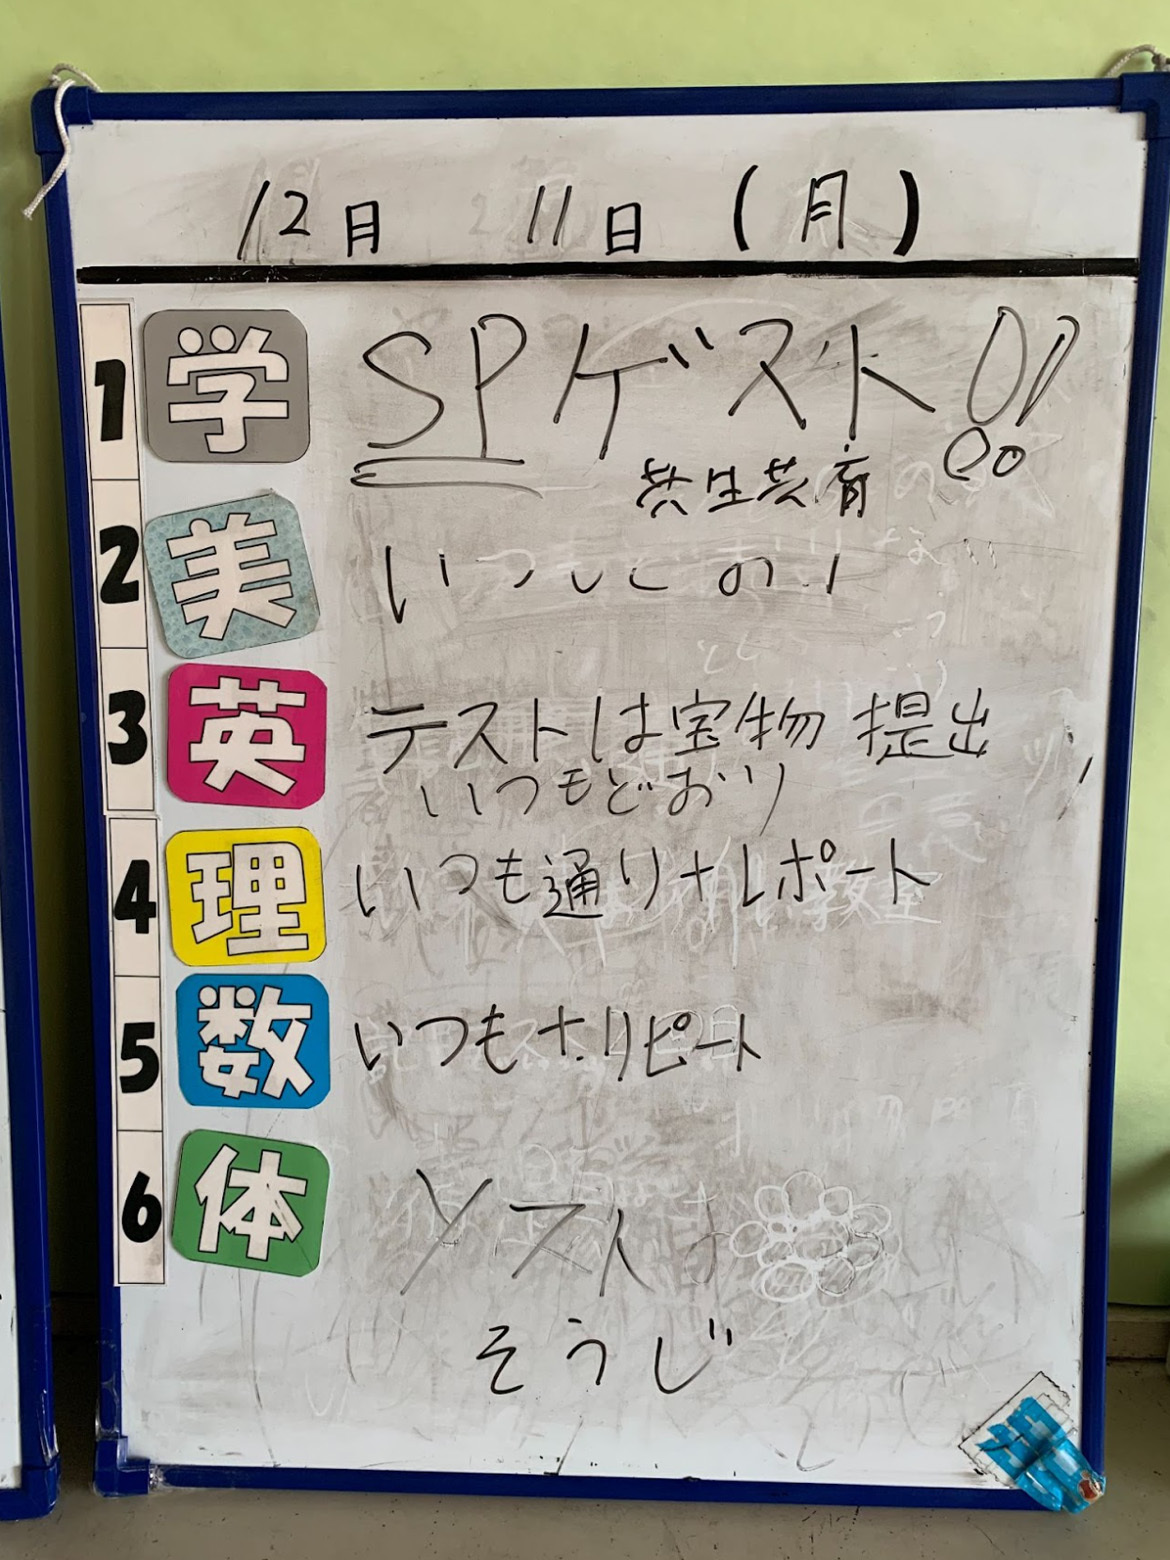 12月 11日 (月)
1 学 SPゲスト!!
共生共育
2 美 いつもどおり
3 英 テストは宝物 提出
いつもどおり
4 理 いつも通り+レポート
5 数 いつも+リピート
6 体
そうじ